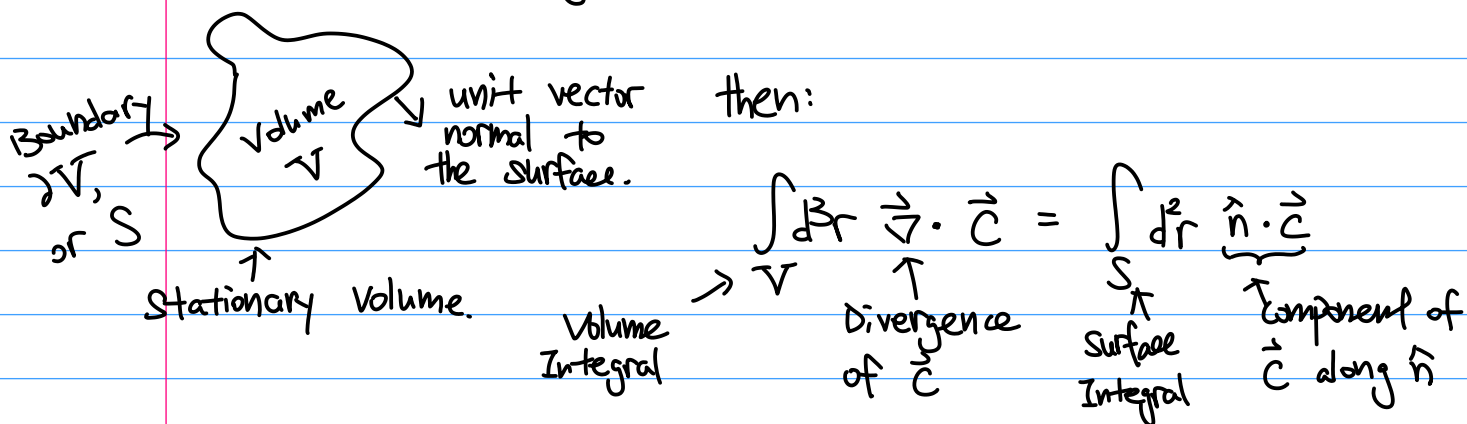 Boundary
∂V,
or S
Volume
V
unit vector
normal to
the surface.
Stationary Volume.
then:
∫_V d³r ∇⃗ · C⃗ = ∫_S d²r n̂ · c⃗
Volume
Integral
Divergence
of C⃗
Surface
Integral
Component of
C⃗ along n̂